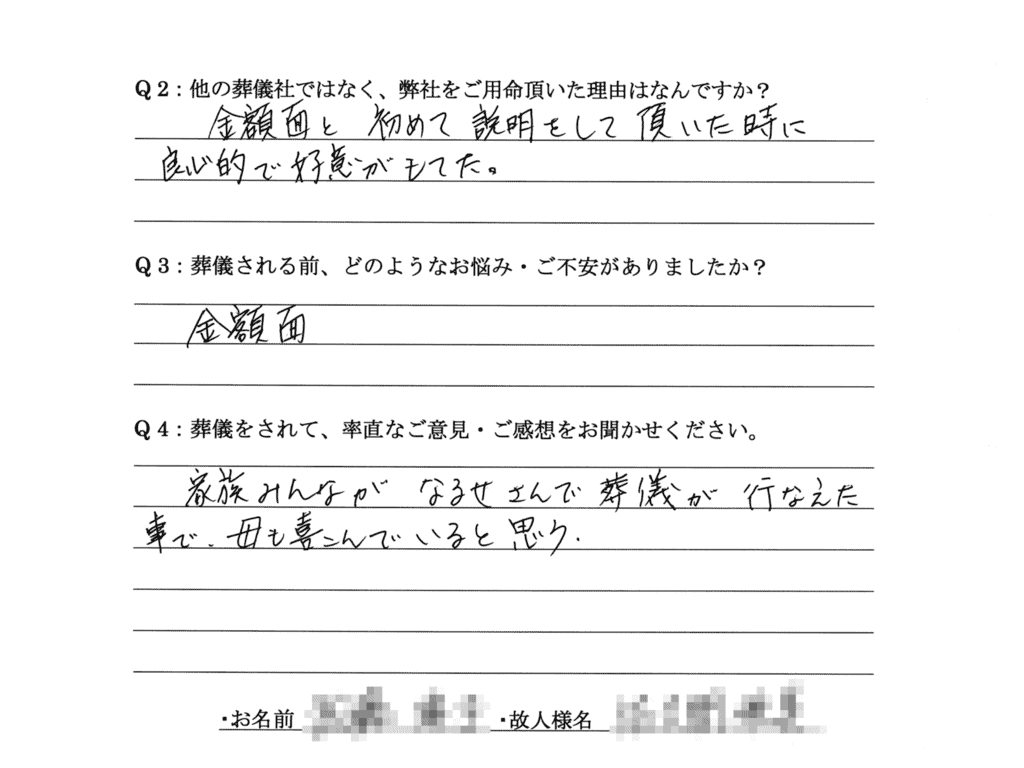 Q2：他の葬儀社ではなく、弊社をご用命頂いた理由はなんですか？
金額面と 初めて 説明をして 頂いた時に
良心的で好意がもてた。
Q3：葬儀される前、どのようなお悩み・ご不安がありましたか？
金額面
Q4：葬儀をされて、率直なご意見・ご感想をお聞かせください。
家族みんなが なるせさんで 葬儀が 行なえた
事で、母も喜こんでいると思う.
・お名前 ・故人様名